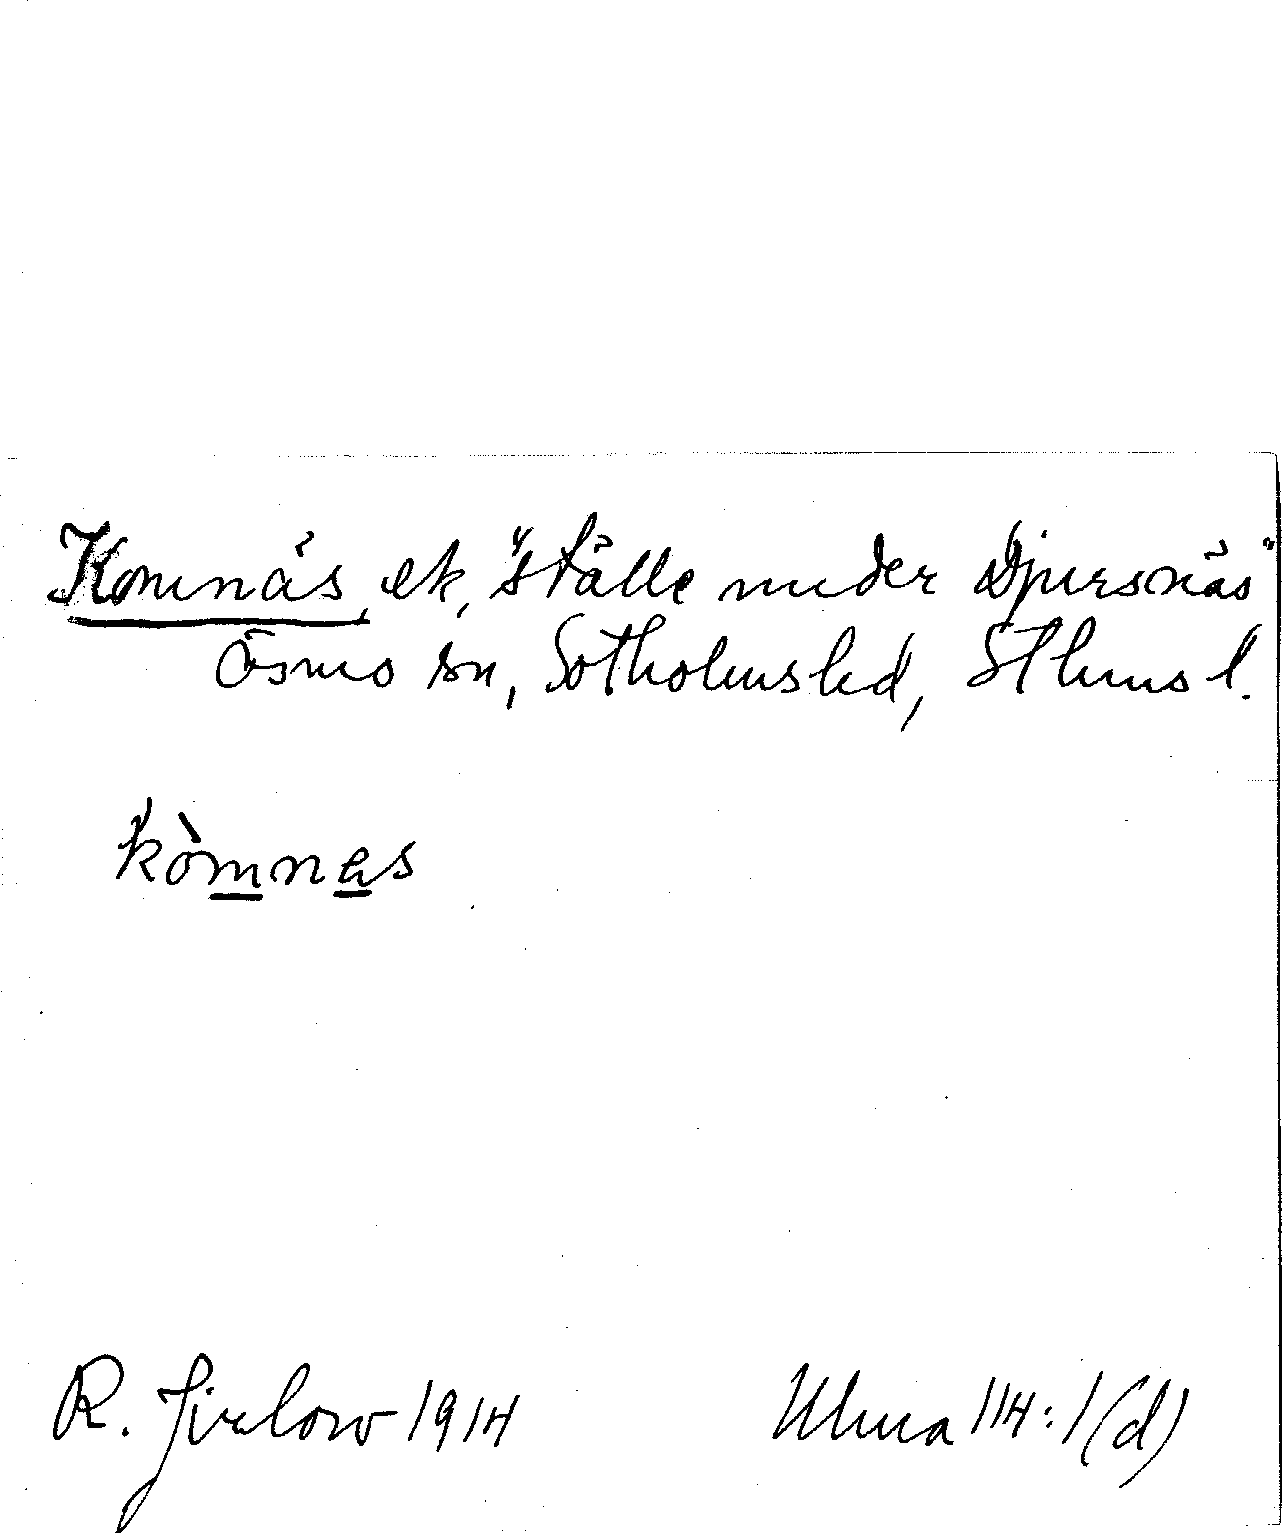 Komnäs, ek, "ställe under Djursnäs"
Ösmo sn, Sotholms hd, Sthms l.
kòmnas
R. Jirlow 1914
Ulma 114:1(d)